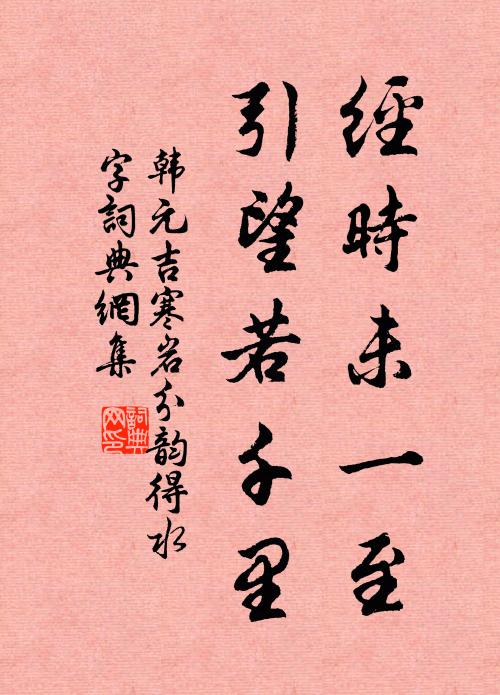 經時未一至
引望若千里
韩元吉寒岩分韵得水
字詞典網集
詞典网印